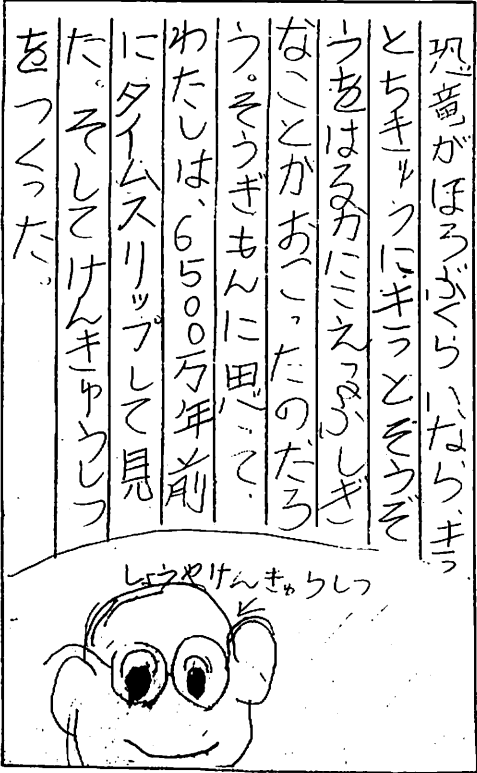 恐竜がほろぶくらいなら、きっ
とちきゅうに、キっとそうぞ
うをはるかにこえっふしぎ
なことがおこったのだろ
う。そうぎもんに思って、
わたしは、6500万年前
にタイムスリップして見
た。そしてけんきゅうしつ
をつくった。
しょうやけんきゅうしつ